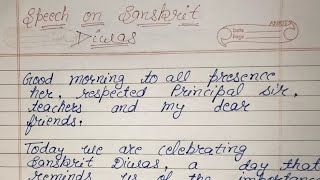 Speech on Sanskrit
Diwas
Date
Page
Good morning to all presence
her, respected Principal sir,
teachers and my dear
friends.
Today we are celebrating
Sanskrit Diwas, a day that
reminds us of the importance